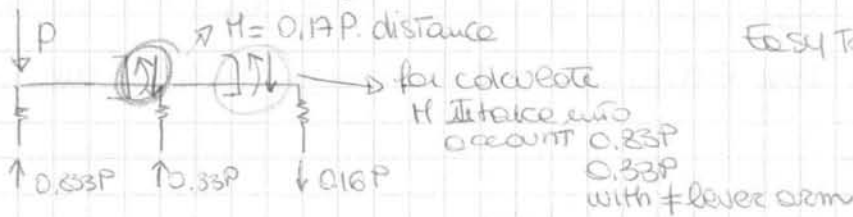 P
M = 0,17P. distance
Easy T
for calculate
M I take into
account 0.83P
0.33P
with ≠ lever arm
↑ 0,833P ↑ 0.33P ↓ 0.16P